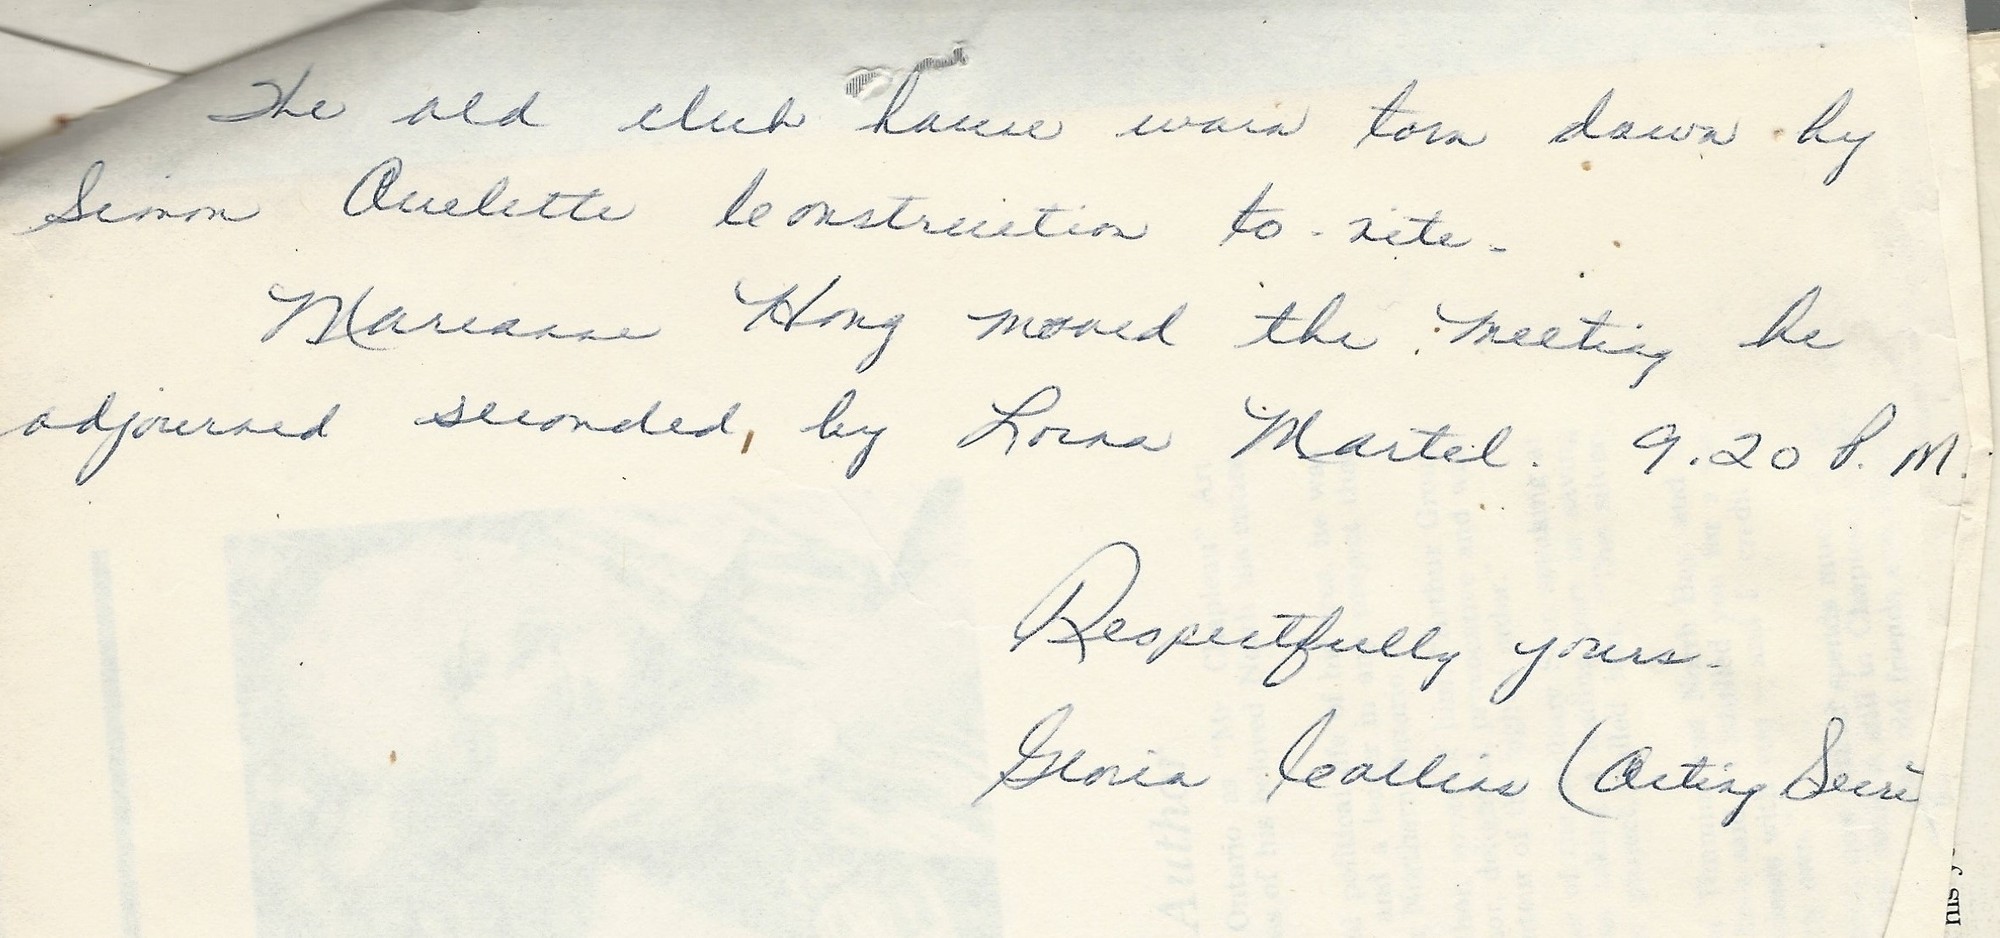 The old club house was torn down by
Simon Ouelette Construction to-site-
Marianne Hong moved the meeting be
adjourned seconded, by Lorna Martel. 9.20 P.M.
Respectfully yours-
Gloria (Acting Secre
ms